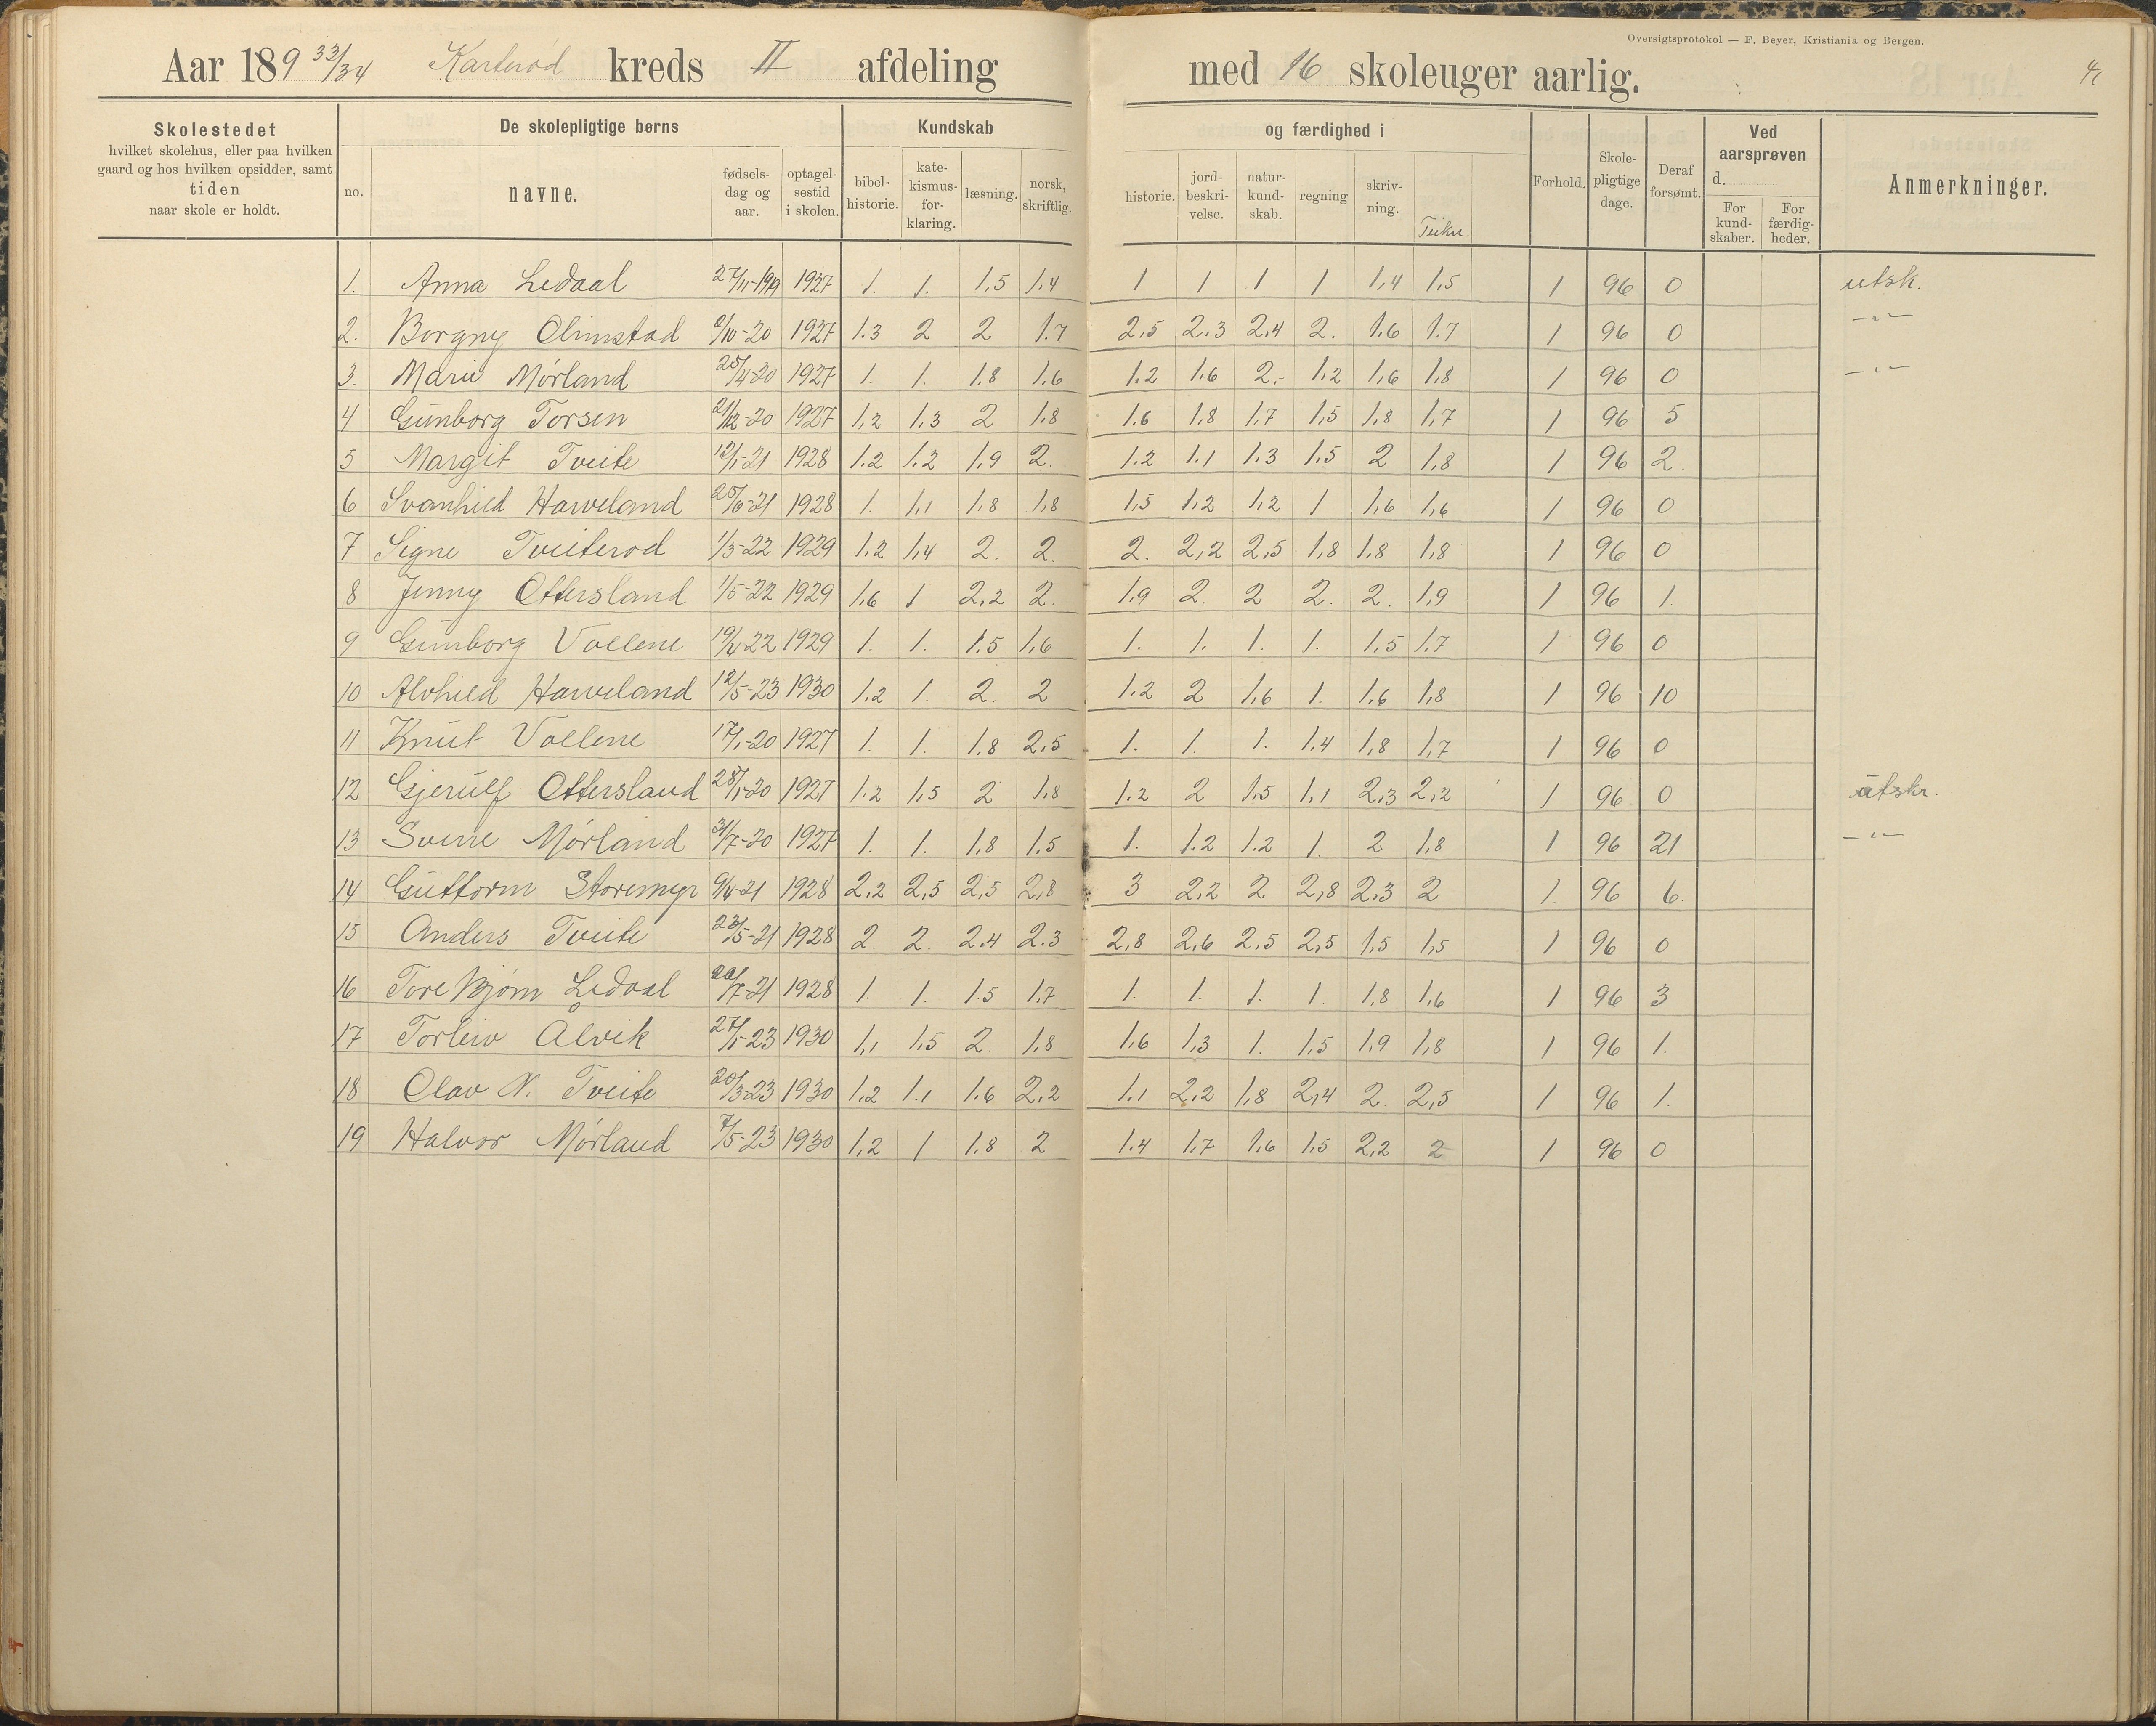 Oversigtsprotokol — F. Beyer, Kristiania og Bergen.
Aar 189 33/34 Karterød kreds II afdeling med 16 skoleuger aarlig. 4
Skolestedet hvilket skolehus, eller paa hvilken gaard og hos hvilken opsidder, samt tiden naar skole er holdt.
De skolepligtige børns
no. navne. fødsels-dag og aar. optagel-sestid i skolen.
Kundskab og færdighed i
bibel-historie. kate-kismus-for-klaring. læsning. norsk, skriftlig. historie. jord-beskri-velse. natur-kund-skab. regning skriv-ning. Teikn.
Forhold. Skole-pligtige dage. Deraf forsømt.
Ved aarsprøven d. For kund-skaber. For færdig-heder.
Anmerkninger.
1. Anna Ledaal 27/11-1919 1927 1. 1. 1,5 1,4 1 1 1 1 1,4 1,5 1 96 0 utsk.
2. Borgny Olimstad 9/10-20 1927 1.3 2 2 1.7 2,5 2.3 2,4 2. 1.6 1.7 1 96 0 -"-
3. Marie Mørland 25/4-20 1927 1. 1. 1.8 1,6 1.2 1.6 2.- 1.2 1,6 1,8 1 96 0 -"-
4 Gunborg Torsen 21/12-20 1927 1,2 1,3 2 1,8 1.6 1,8 1,7 1,5 1,8 1,7 1 96 5
5 Margit Tveite 12/1-21 1928 1.2 1.2 1,9 2. 1.2 1.1 1.3 1.5 2 1,8 1 96 2.
6 Svanhild Haveland 25/6-21 1928 1. 1,1 1,8 1,8 1,5 1,2 1,2 1 1,6 1,6 1 96 0
7 Signe Tveiterød 1/3-22 1929 1.2 1,4 2. 2. 2. 2,2 2,5 1,8 1,8 1,8 1 96 0
8 Jenny Ottersland 1/5-22 1929 1,6 1 2,2 2. 1.9 2. 2 2. 2. 1,9 1 96 1.
9 Gunborg Vollene 19/10-22 1929 1. 1. 1.5 1,6 1. 1. 1. 1. 1.5 1.7 1 96 0
10 Alvhild Haveland 12/5-23 1930 1.2 1. 2. 2 1.2 2 1,6 1. 1,6 1,8 1 96 10
11 Knut Vollene 17/1-20 1927 1. 1. 1.8 2,5 1. 1. 1. 1,4 1,8 1,7 1 96 0
12 Gjerulf Ottersland 28/1-20 1927 1.2 1,5 2 1,8 1.2 2 1.5 1,1 2,3 2,2 1 96 0 utskr.
13 Sverre Mørland 31/7-20 1927 1. 1. 1,8 1.5 1. 1.2 1.2 1. 2 1,8 1 96 21 -"-
14 Guttorm Storemyr 9/4-21 1928 2.2 2,5 2,5 2,8 3 2,2 2 2,8 2.3 2 1. 96 6.
15 Anders Tveite 23/5-21 1928 2. 2. 2.4 2.3 2,8 2,6 2,5 2,5 1,5 1,5 1 96 0
16 Tore Bjørn Ledaal /7-21 1928 1. 1. 1.5 1,7 1. 1. 1. 1. 1,8 1,6 1 96 3
17 Torleiv Ålvik 27/1-23 1930 1,1 1,5 2. 1,8 1,6 1,3 1. 1,5 1,9 1,8 1 96 1.
18 Olav N. Tveite 20/3-23 1930 1,2 1.1 1.6 2,2 1.1 2.2 1,8 2,4 2. 2,5 1 96 1.
19 Halvor Mørland 7/5-23 1930 1,2 1 1.8 2 1.4 1,7 1,6 1.5 2,2 2 1 96 0